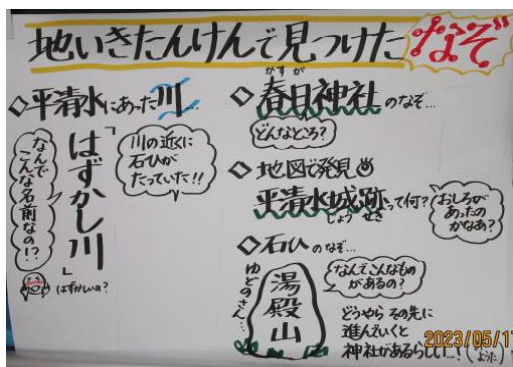 地いきたんけんで見つけた なぞ
◇平清水にあった川
「はずかし川」
なんで
こんな名前なの!?
はずかしいの?
川の近くに
石ひが
たっていた!!
◇春日神社のなぞ…
かすが
どんなところ?
◇地図で発見
平清水城跡って何?
じょう せき
おしろが
あったの
かなあ?
◇石ひのなぞ…
ゆどのさん…
湯殿山
なんでこんなもの
があるの?
どうやら その先に
進んでいくと
神社があるらしい…!
(ようた)
2023/05/1